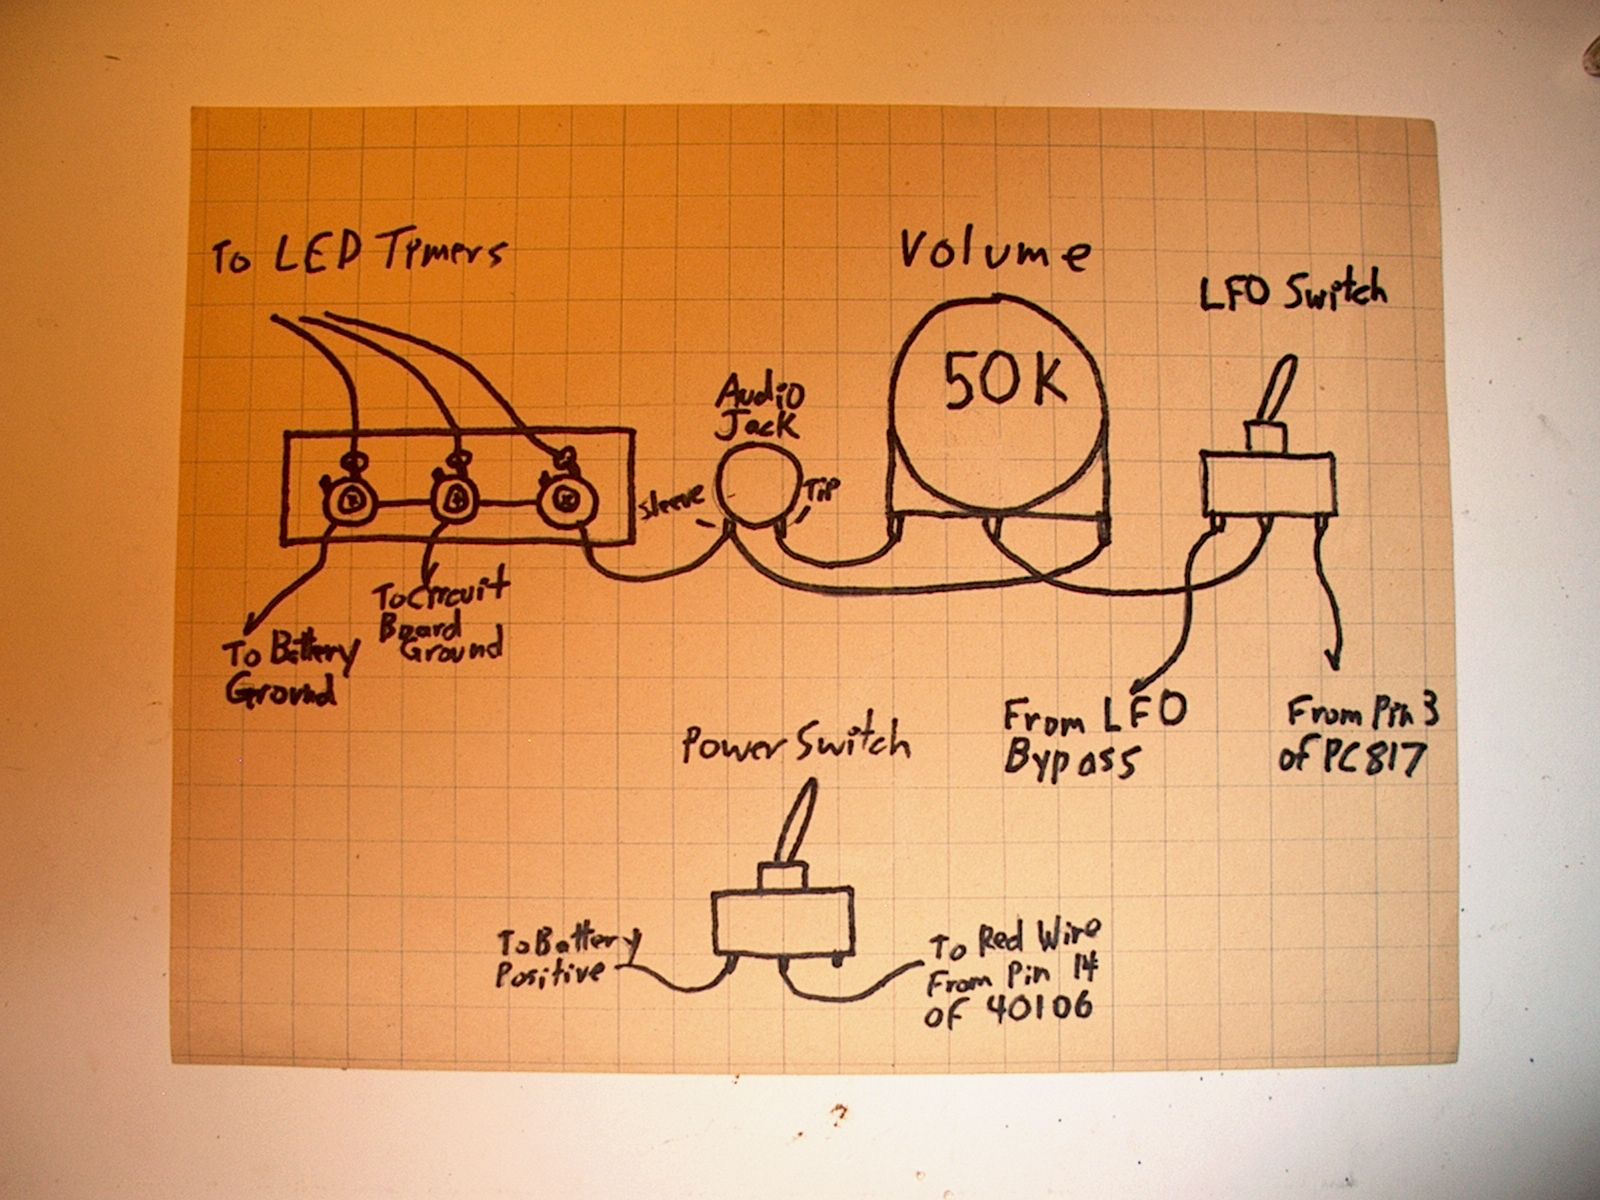 To LED Timers
Volume
LFO Switch
50K
Audio
Jack
Sleeve
Tip
To Circuit
Board
Ground
To Battery
Ground
From LFO
Bypass
From Pin 3
of PC817
Power Switch
To Battery
Positive
To Red Wire
From Pin 14
of 40106